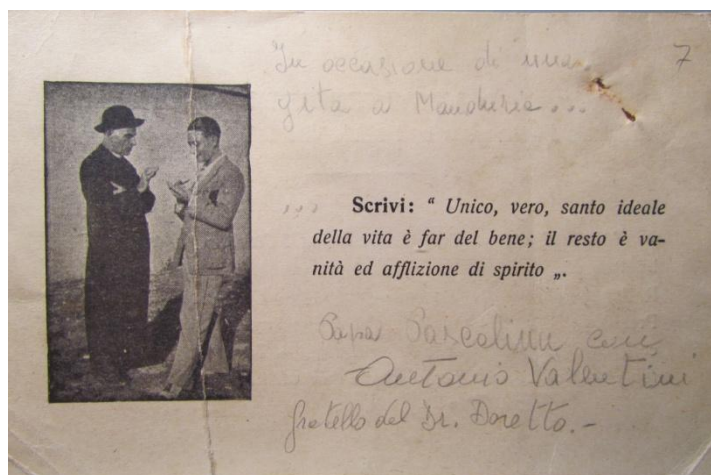 In occasione di una
7
gita a Manduria...
... Scrivi: “ Unico, vero, santo ideale
della vita è far del bene; il resto è va-
nità ed afflizione di spirito „.
Papa Pascalinu con
Antonio Valentini
fratello del Dr. Doretto.-